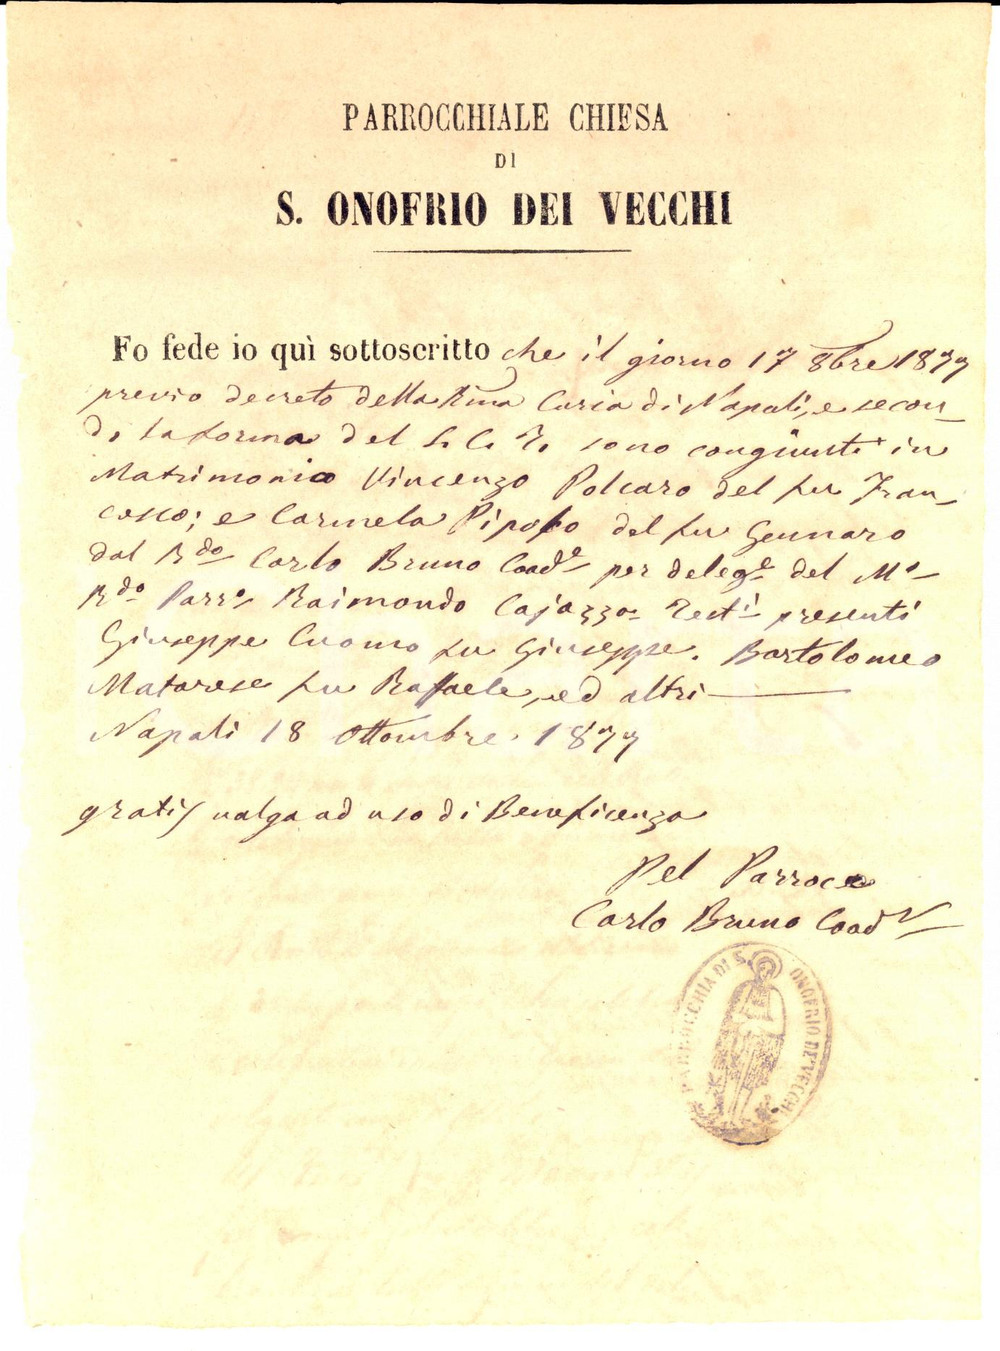 PARROCCHIALE CHIESA
DI
S. ONOFRIO DEI VECCHI
Fo fede io quì sottoscritto che il giorno 17 8bre 1877
previo decreto della Rma Curia di Napoli, e secon-
do la forma del S. C. T. sono congiunti in
Matrimonio Vincenzo Polcaro del fu Fran-
cesco; e Carmela Pipolo del fu Gennaro
dal Rdo Carlo Bruno Coade per delege del Mo
Rdo Parro Raimondo Cajazzo Testi presenti
Giuseppe Cuomo fu Giuseppe. Bartolomeo
Matarese fu Raffaele, ed altri
Napoli 18 Ottombre 1877
gratis valga ad uso di Beneficenza
Pel Parroco
Carlo Bruno Coadr
PARROCCHIA DI S. ONOFRIO DE' VECCHI